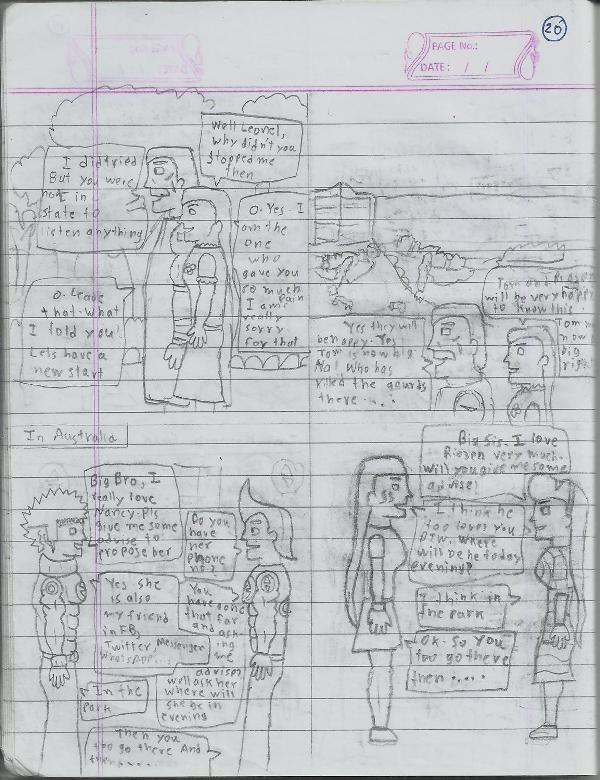 20
PAGE No.:
DATE: / /
Well Leonel,
why didn't you
stopped me
then
I did tried
But you were
not in
state to
listen anything
O. Yes I
am the
one
who
gave you
so much
pain
I am
really
sorry
for that
O. Leave
that. What
I told you!
Lets have a
new start
Tom and Riozen
will be very happy
to know this.
Tom is
now
big
right
Yes they will
be happy. Yes
Tom is now big
Na! Who has
killed the gaurds
there....
In Australia
Big Bro, I
really love
Nancy. Pls
give me some
advise to
propose her
Do you
have
her
phone
no?
Yes she
is also
my friend
in FB,
Twitter, Messenger
WhatsApp...
You
have gone
that far
and ask-
ing
me
advise
well ask her
where will
she be in
evening
In the
park
Then you
too go there And
then.....
Big Sis. I love
Riozen very much.
will you give me some
advise!
I think he
too loves you
BTW, where
will be he today
evening?
I think in
the park
Ok. So you
too go there
then.....